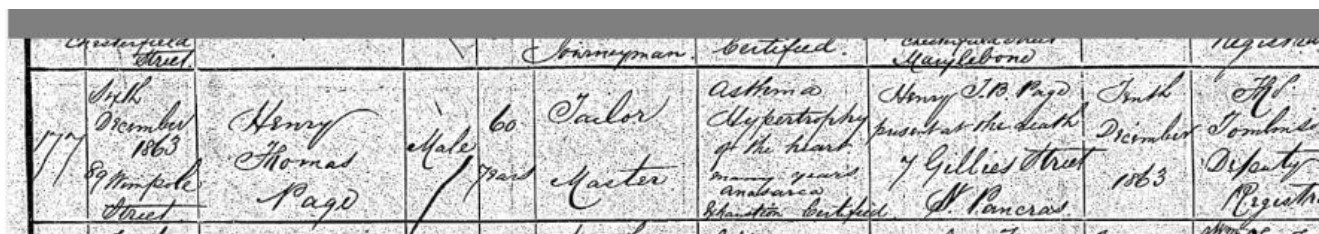 Chesterfield
Street
Journeyman
Certified.
Marylebone
177
Sixth
December
1863
89 Wimpole
Street
Henry
Thomas
Page
Male
60
Years
Tailor
Master
Asthma
Hypertrophy
of the heart
many years
Anasarca
Exhaustion Certified
Henry T.B. Page
present at the death
7 Gillies Street
St. Pancras.
Tenth
December
1863
Tomlinso
Deputy
Registra